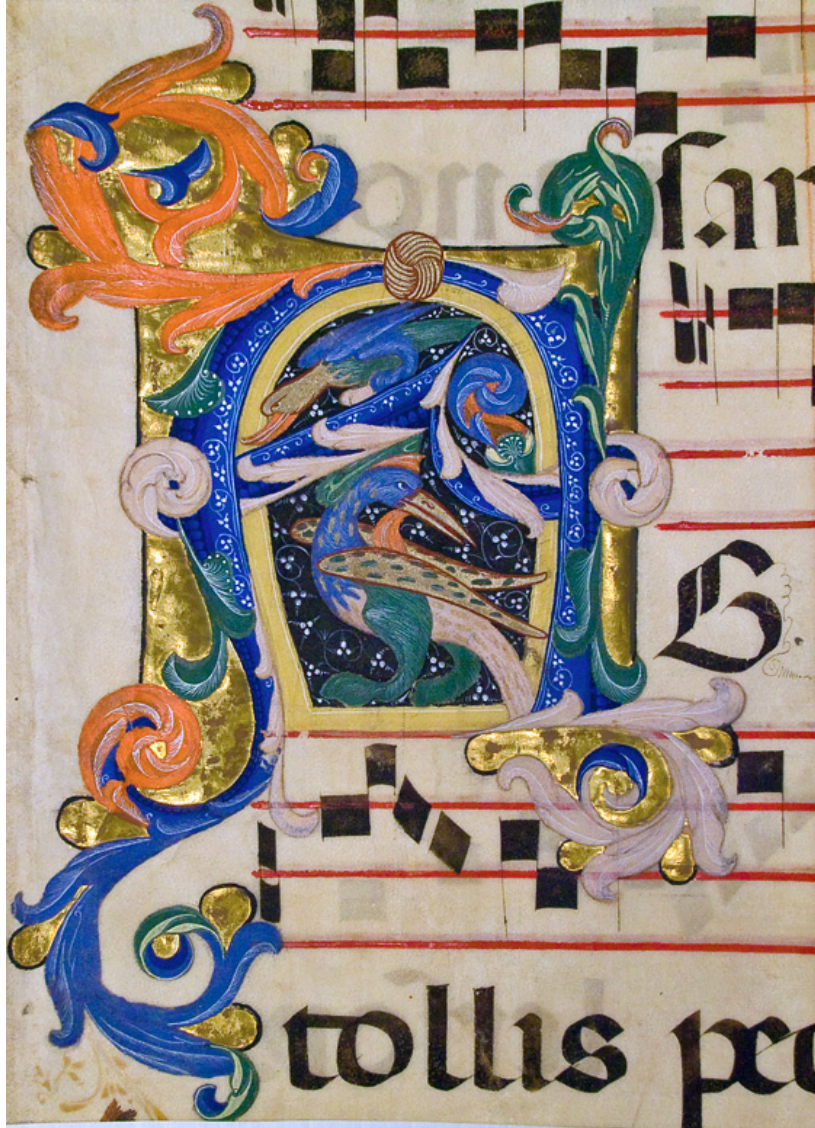 ſan
AG
tollis pec